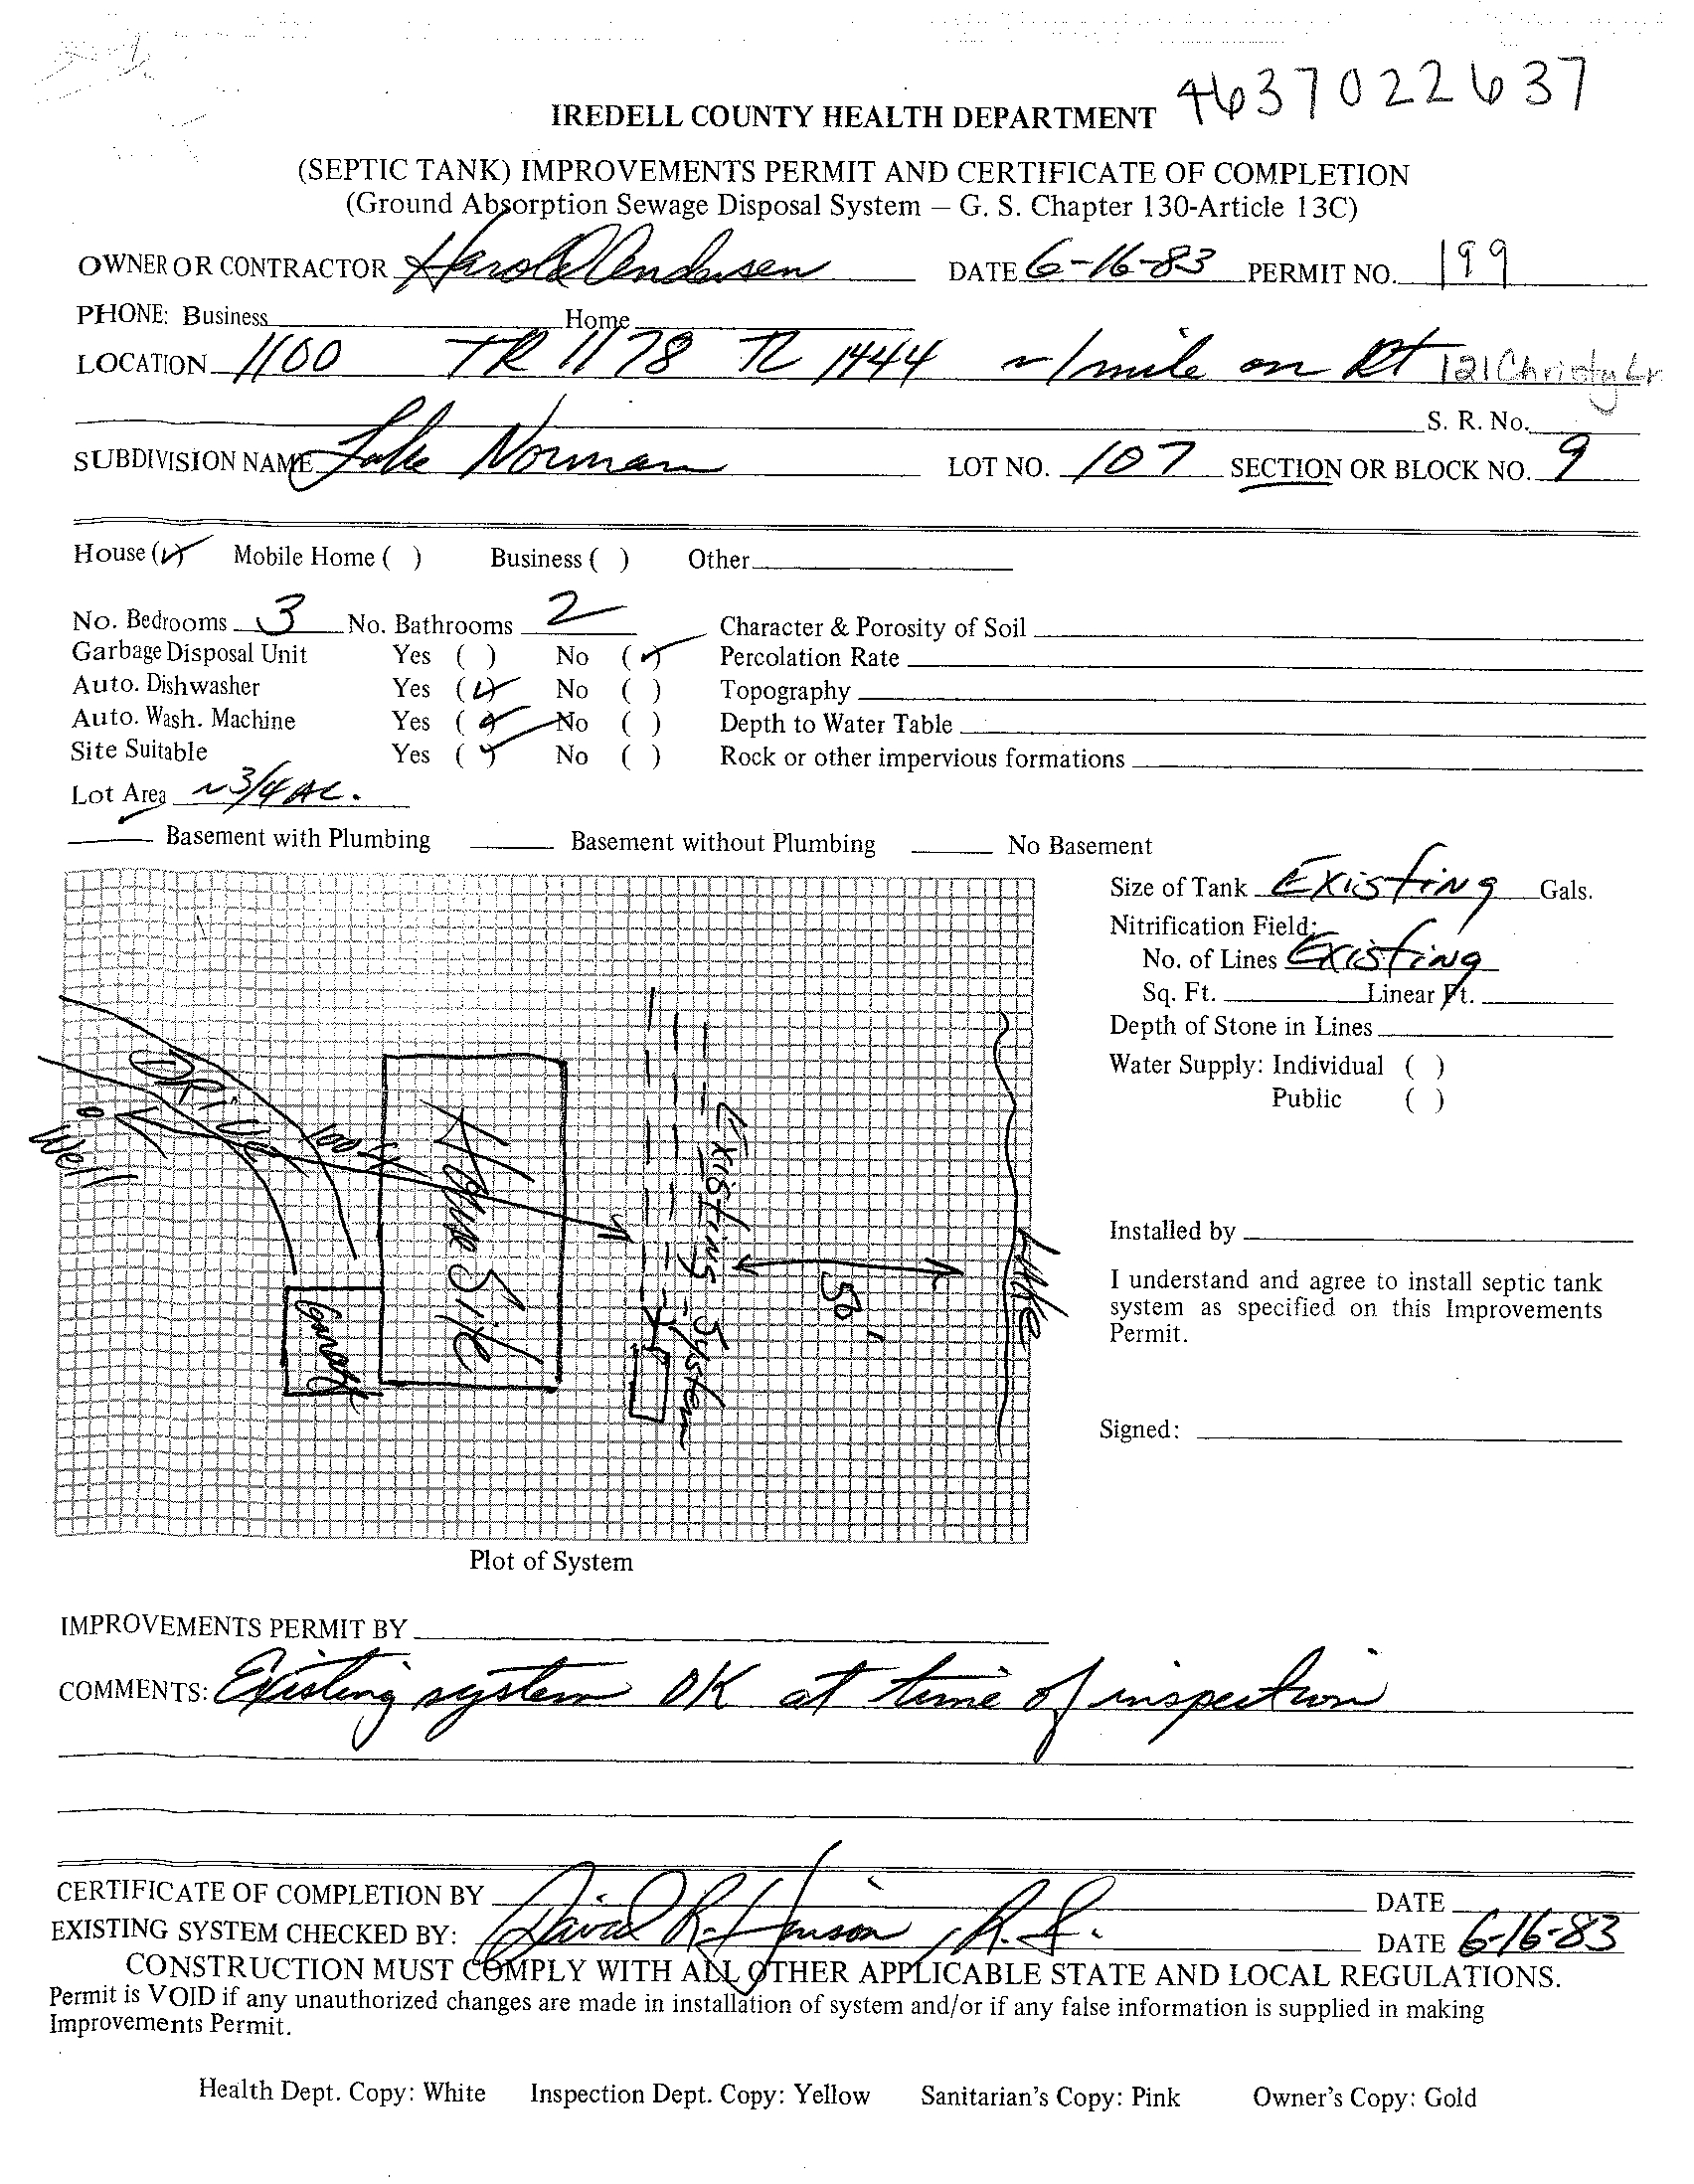 4637022637
IREDELL COUNTY HEALTH DEPARTMENT
(SEPTIC TANK) IMPROVEMENTS PERMIT AND CERTIFICATE OF COMPLETION
(Ground Absorption Sewage Disposal System – G. S. Chapter 130-Article 13C)
OWNER OR CONTRACTOR Harold Andersen DATE 6-16-83 PERMIT NO. 199
PHONE: Business Home
LOCATION 1100 TR 1178 TL 1444 ~1 mile on Rt 121 Christy Ln
S. R. No.
SUBDIVISION NAME Lake Norman LOT NO. 107 SECTION OR BLOCK NO. 9
House (✓) Mobile Home ( ) Business ( ) Other
No. Bedrooms 3 No. Bathrooms 2 Character & Porosity of Soil
Garbage Disposal Unit Yes ( ) No (✓) Percolation Rate
Auto. Dishwasher Yes (✓) No ( ) Topography
Auto. Wash. Machine Yes (✓) No ( ) Depth to Water Table
Site Suitable Yes (✓) No ( ) Rock or other impervious formations
Lot Area ~3/4 AC.
Basement with Plumbing Basement without Plumbing No Basement
Size of Tank Existing Gals.
Nitrification Field:
No. of Lines Existing
Sq. Ft. Linear Ft.
Depth of Stone in Lines
Water Supply: Individual ( )
Public ( )
DRIVE
Well
100 ft
House Site
Garage
Existing System
50'
Lake
Installed by
I understand and agree to install septic tank
system as specified on this Improvements
Permit.
Signed:
Plot of System
IMPROVEMENTS PERMIT BY
COMMENTS: Existing system OK at time of inspection
CERTIFICATE OF COMPLETION BY DATE
EXISTING SYSTEM CHECKED BY: David R. Hinson, R.S. DATE 6-16-83
CONSTRUCTION MUST COMPLY WITH ALL OTHER APPLICABLE STATE AND LOCAL REGULATIONS.
Permit is VOID if any unauthorized changes are made in installation of system and/or if any false information is supplied in making
Improvements Permit.
Health Dept. Copy: White Inspection Dept. Copy: Yellow Sanitarian's Copy: Pink Owner's Copy: Gold